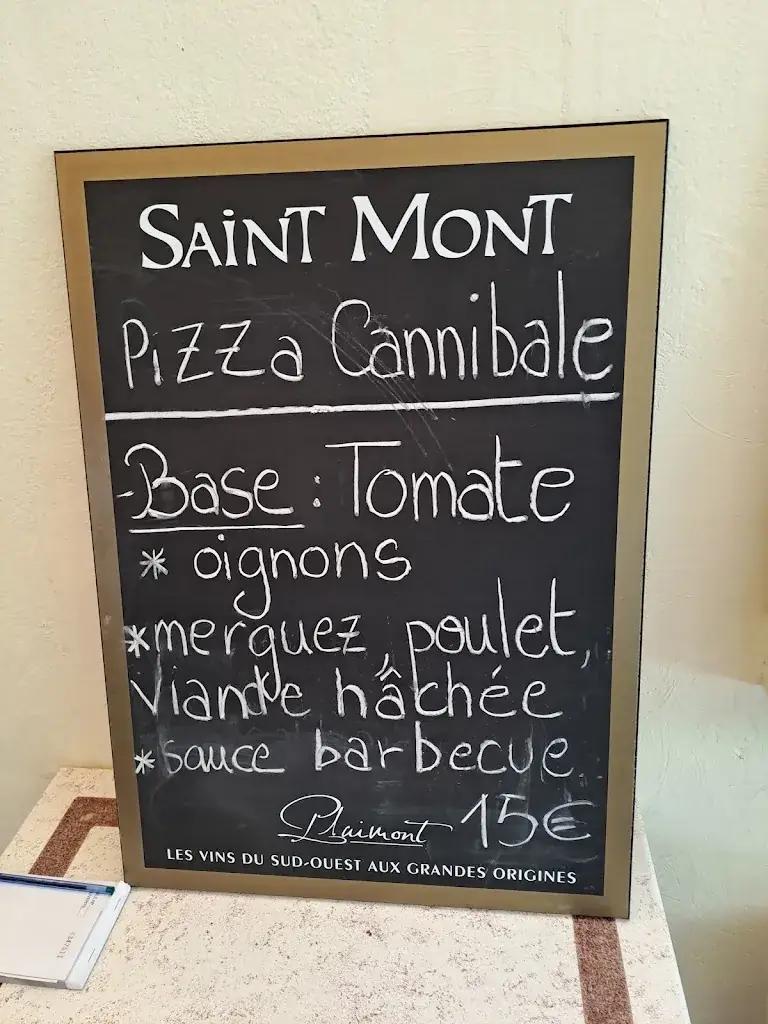 SAINT MONT
Pizza Cannibale
-Base : Tomate
* oignons
*merguez, poulet,
viande hâchée
*sauce barbecue
Plaimont 15€
LES VINS DU SUD-OUEST AUX GRANDES ORIGINES